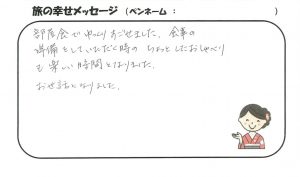 旅の幸せメッセージ (ペンネーム: )
部屋食でゆっくりすごせました。食事の
準備をしていただく時の ちょっとしたおしゃべり
も楽しい時間となりました。
お世話となりました。